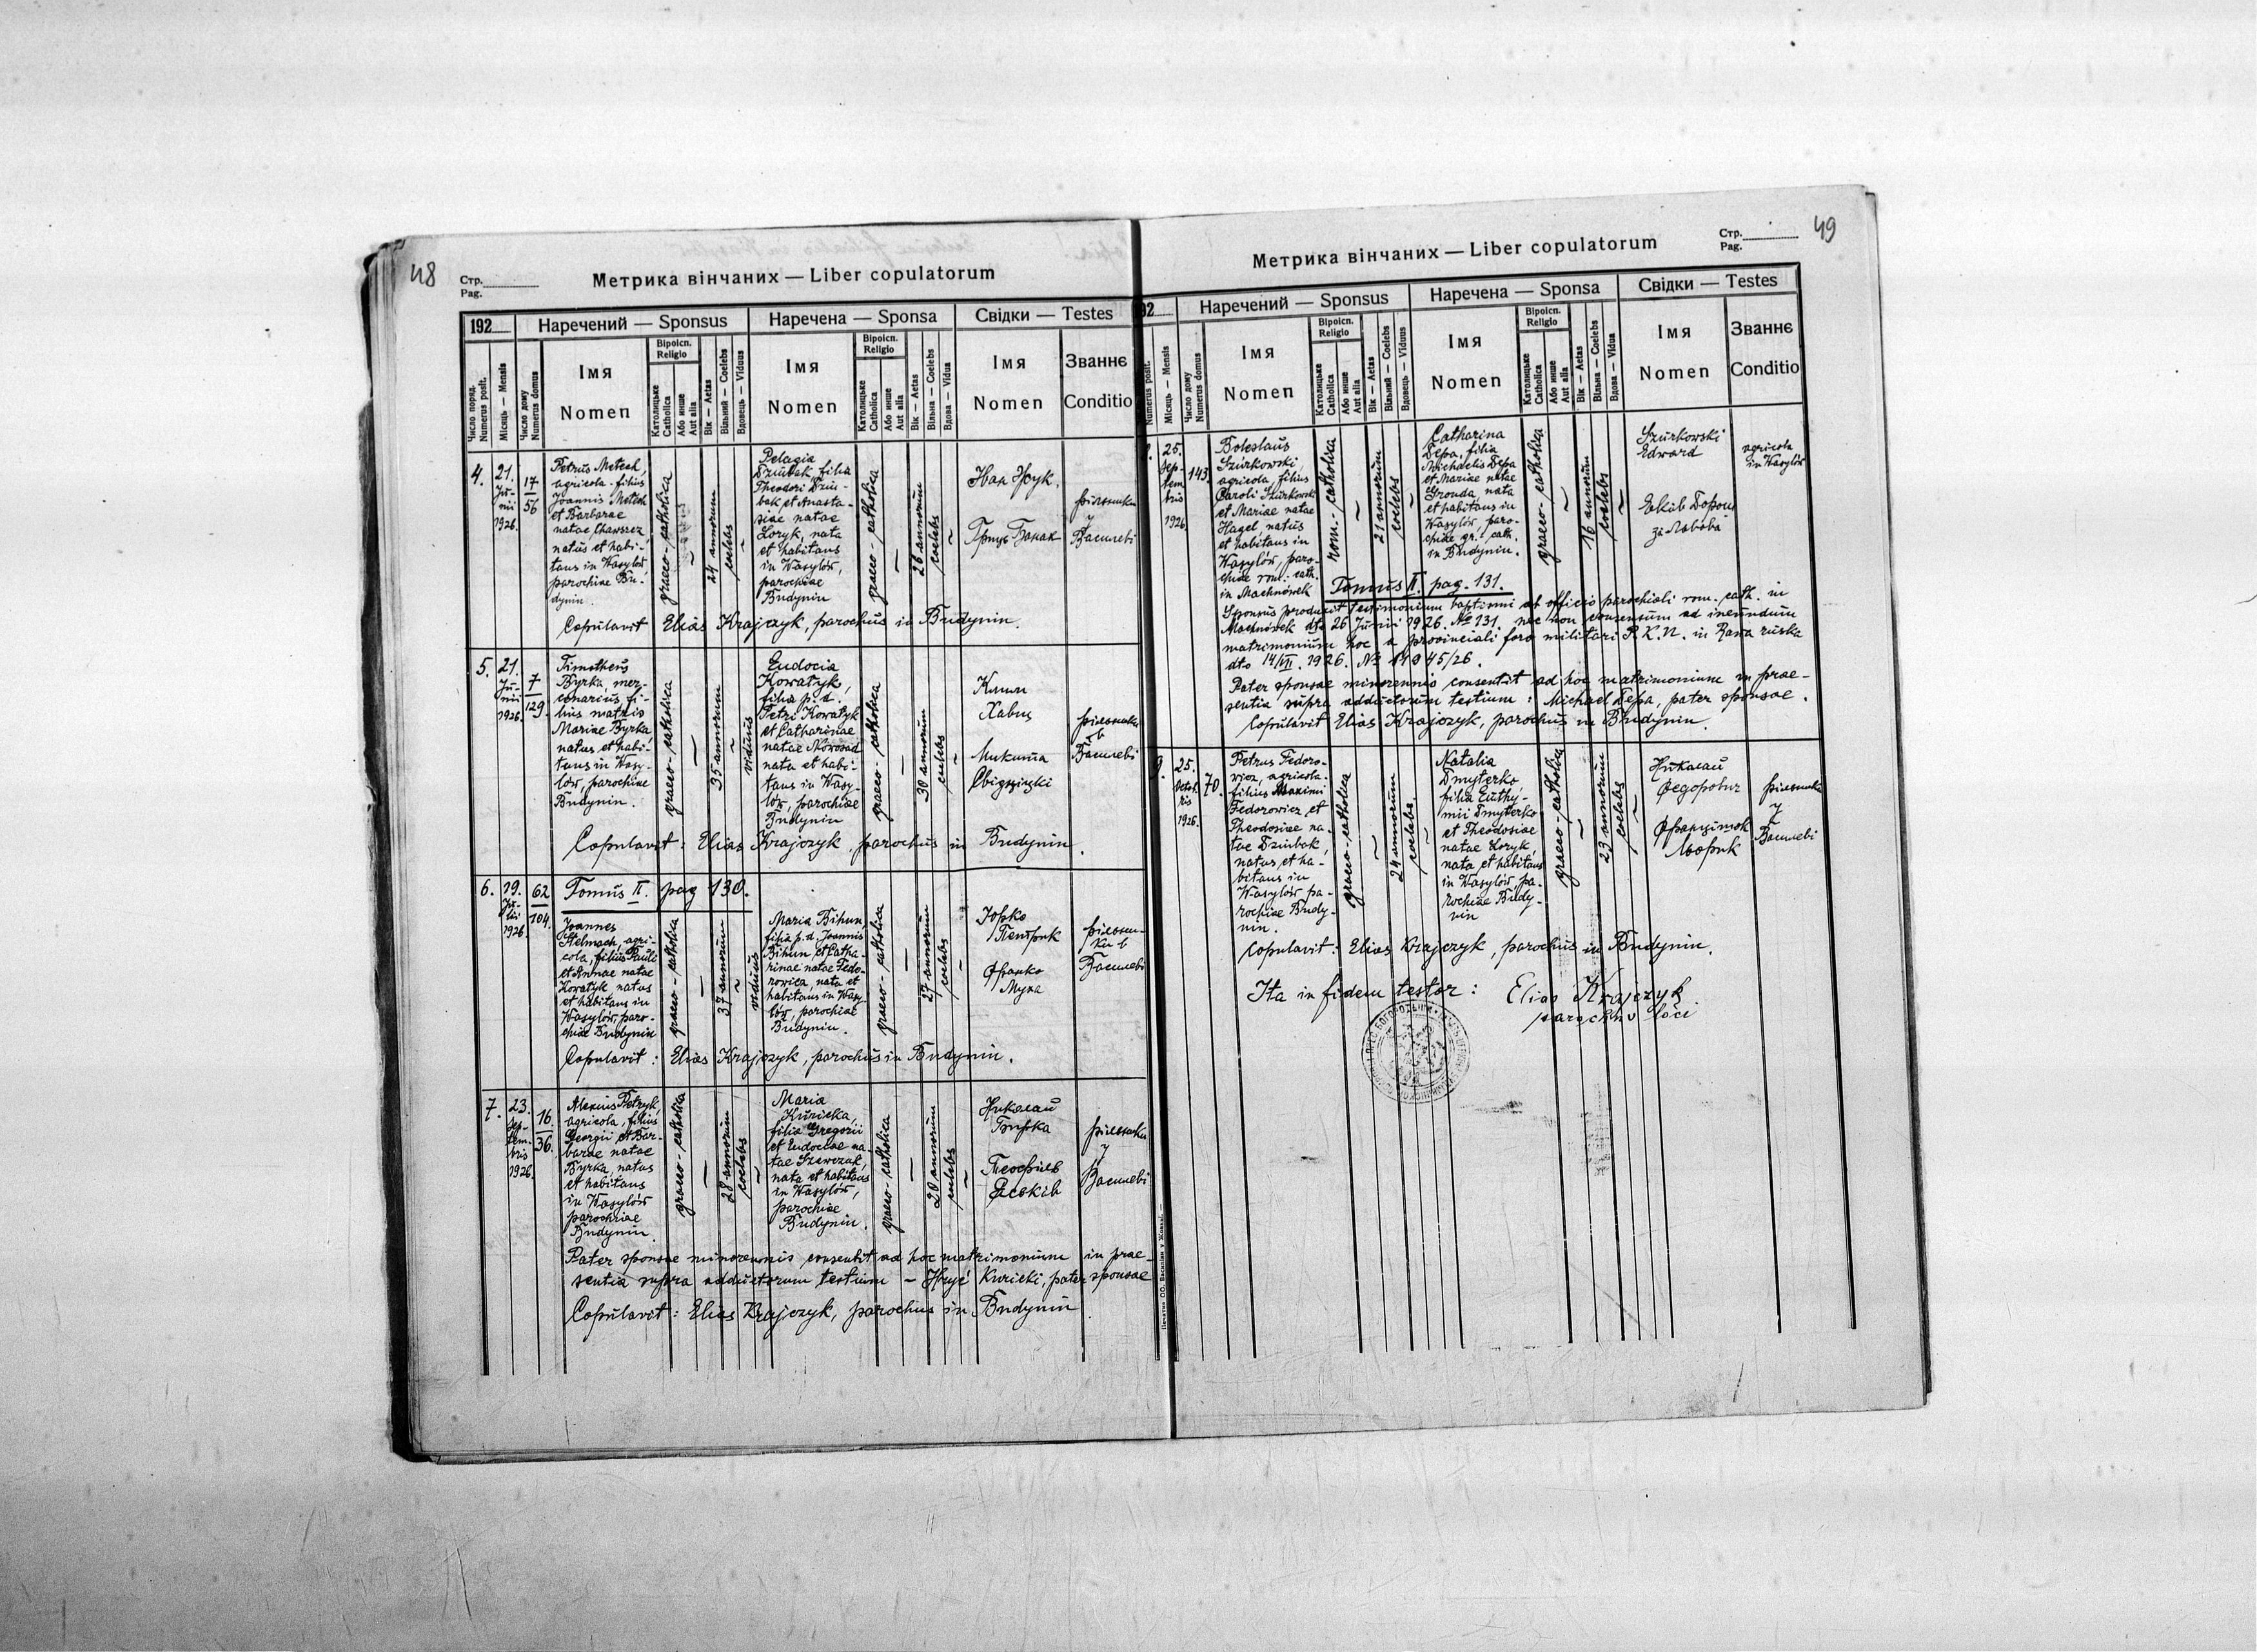 48
Стр.
Pag.
Метрика вінчаних — Liber copulatorum
192
Наречений — Sponsus
Наречена — Sponsa
Свідки — Testes
Число поряд.
Numerus posit.
Місяць — Mensis
Число дому
Numerus domus
Імя
Nomen
Віроісп.
Religio
Католицьке
Catholica
Або инше
Aut alia
Вік — Aetas
Вільний — Coelebs
Вдовець — Viduus
Імя
Nomen
Віроісп.
Religio
Католицьке
Catholica
Або инше
Aut alia
Вік — Aetas
Вільна — Coelebs
Вдова — Vidua
Імя
Nomen
Званнє
Conditio
4.
21.
Ju-
nii
1926.
17
56
Petrus Metech,
agricola - filius
Joannis Metech
et Barbarae
natae
natus et habi-
tans in Wasylów
parochiae Bu-
dynin.
graeco-catholica
24 annorum
coelebs
Pelagia
Dziubak filia
Theodori Dziu-
bak et Anasta-
siae natae
Loryk, nata
et habitans
in Wasylów,
parochiae
Budynin
graeco-catholica
26 annorum
coelebs
Іван
Гриць
рільники
у
Василеві
Copulavit Elias Krajczyk, parochus in Budynin.
5.
21.
Ju-
nii
1926.
7
129.
Timotheus
Byrka, mer-
cenarius, fi-
lius matris
Mariae Byrka
natus et habi-
tans in Wasy-
lów, parochiae
Budynin.
graeco-catholica
35 annorum
viduus
Eudocia
Kowatyk,
filia p.d.
Petri Kowatyk
et Catharinae
natae Nowosad
nata et habi-
tans in Wasy-
lów, parochiae
Budynin
graeco-catholica
30 annorum
coelebs
Микита
рільники
в
Василеві
Copulavit: Elias Krajczyk, parochus in Budynin.
6.
19.
Ju-
lii
1926.
62
104.
Tomus II. pag 130.
Joannes
Stelmach, agri-
cola, filius Pauli
et Annae natae
Kowatyk natus
et habitans in
Wasylów, paro-
chiae Budynin
graeco-catholica
37 annorum
viduus
Maria Bihun,
filia p.d. Joannis
Bihun et Catha-
rinae natae Fedo-
rowicz, nata et
habitans in Wasy-
lów, parochiae
Budynin.
graeco-catholica
27 annorum
coelebs
Юрко
Петрик
Франко
Муха
рільни-
ки в
Василеві
Copulavit: Elias Krajczyk, parochus in Budynin.
7.
23.
Sep-
tem-
bris
1926.
16
36.
Alexius Petryk,
agricola, filius
Georgii et Bar-
barae natae
Byrka, natus
et habitans
in Wasylów
parochiae
Budynin.
graeco-catholica
28 annorum
coelebs
Maria
Kuricka,
filia Gregorii
et Eudociae na-
tae Szewczuk,
nata et habitans
in Wasylów,
parochiae
Budynin.
graeco-catholica
20 annorum
coelebs
Николай
Бирка
Теофіль
Яськів
рільники
у
Василеві
Pater sponsae minorennis consentit ad hoc matrimonium in prae-
sentia supra adductorum testium – Kuricki, pater sponsae
Copulavit: Elias Krajczyk, parochus in Budynin
Печатня ОО. Василіян у Жовкві. —
49
Стр.
Pag.
Метрика вінчаних — Liber copulatorum
92
Наречений — Sponsus
Наречена — Sponsa
Свідки — Testes
Numerus posit.
Місяць — Mensis
Число дому
Numerus domus
Імя
Nomen
Віроісп.
Religio
Католицьке
Catholica
Або инше
Aut alia
Вік — Aetas
Вільний — Coelebs
Вдовець — Viduus
Імя
Nomen
Віроісп.
Religio
Католицьке
Catholica
Або инше
Aut alia
Вік — Aetas
Вільна — Coelebs
Вдова — Vidua
Імя
Nomen
Званнє
Conditio
25.
Sep-
tem-
bris
1926.
143
Boleslaus
Szurkowski,
agricola, filius
Caroli Szurkowski
et Mariae natae
Hagel, natus
et habitans in
Wasylów, paro-
chiae rom.-cath.
in Machnówek
rom.-catholica
21 annorum
coelebs
Catharina
Depa, filia
Michaelis Depa
et Mariae natae
Gronda, nata
et habitans in
Wasylów, paro-
chiae gr. cath.
in Budynin.
graeco-catholica
16 annorum
coelebs
Szurkowski
Edward
agricola
in Wasylów
Яків
зі Львова
Tomus II. pag. 131.
Sponsus producit testimonium baptismi ab officio parochiali rom. cath. in
Machnówek dto 26 Junii 1926. № 131. nec non consensum ad ineundum
matrimonium hoc a provinciali foro militari P.K.U. in Rawa ruska
dto 14/VII. 1926. № 14045/26.
Pater sponsae minorennis consentit ad hoc matrimonium in prae-
sentia supra adductorum testium: Michael Depa, pater sponsae.
Copulavit Elias Krajczyk, parochus in Budynin.
9.
25.
Octob-
ris
1926.
70.
Petrus Fedoro-
wicz, agricola.
filius Maximi
Fedorowicz et
Theodosiae na-
tae Dziubak,
natus et ha-
bitans in
Wasylów pa-
rochiae Budy-
nin.
graeco-catholica
24 annorum
coelebs.
Natalia
Dmyterko
filia Euthy-
mii Dmyterko
et Theodosiae
natae Loryk,
nata et habitans
in Wasylów, pa-
rochiae Budy-
nin
graeco-catholica
23 annorum
coelebs
Николай
Федорович
Францішок
Льорик
рільники
у
Василеві
Copulavit: Elias Krajczyk, parochus in Budynin.
Ita in fidem testor: Elias Krajczyk.
parochus loci